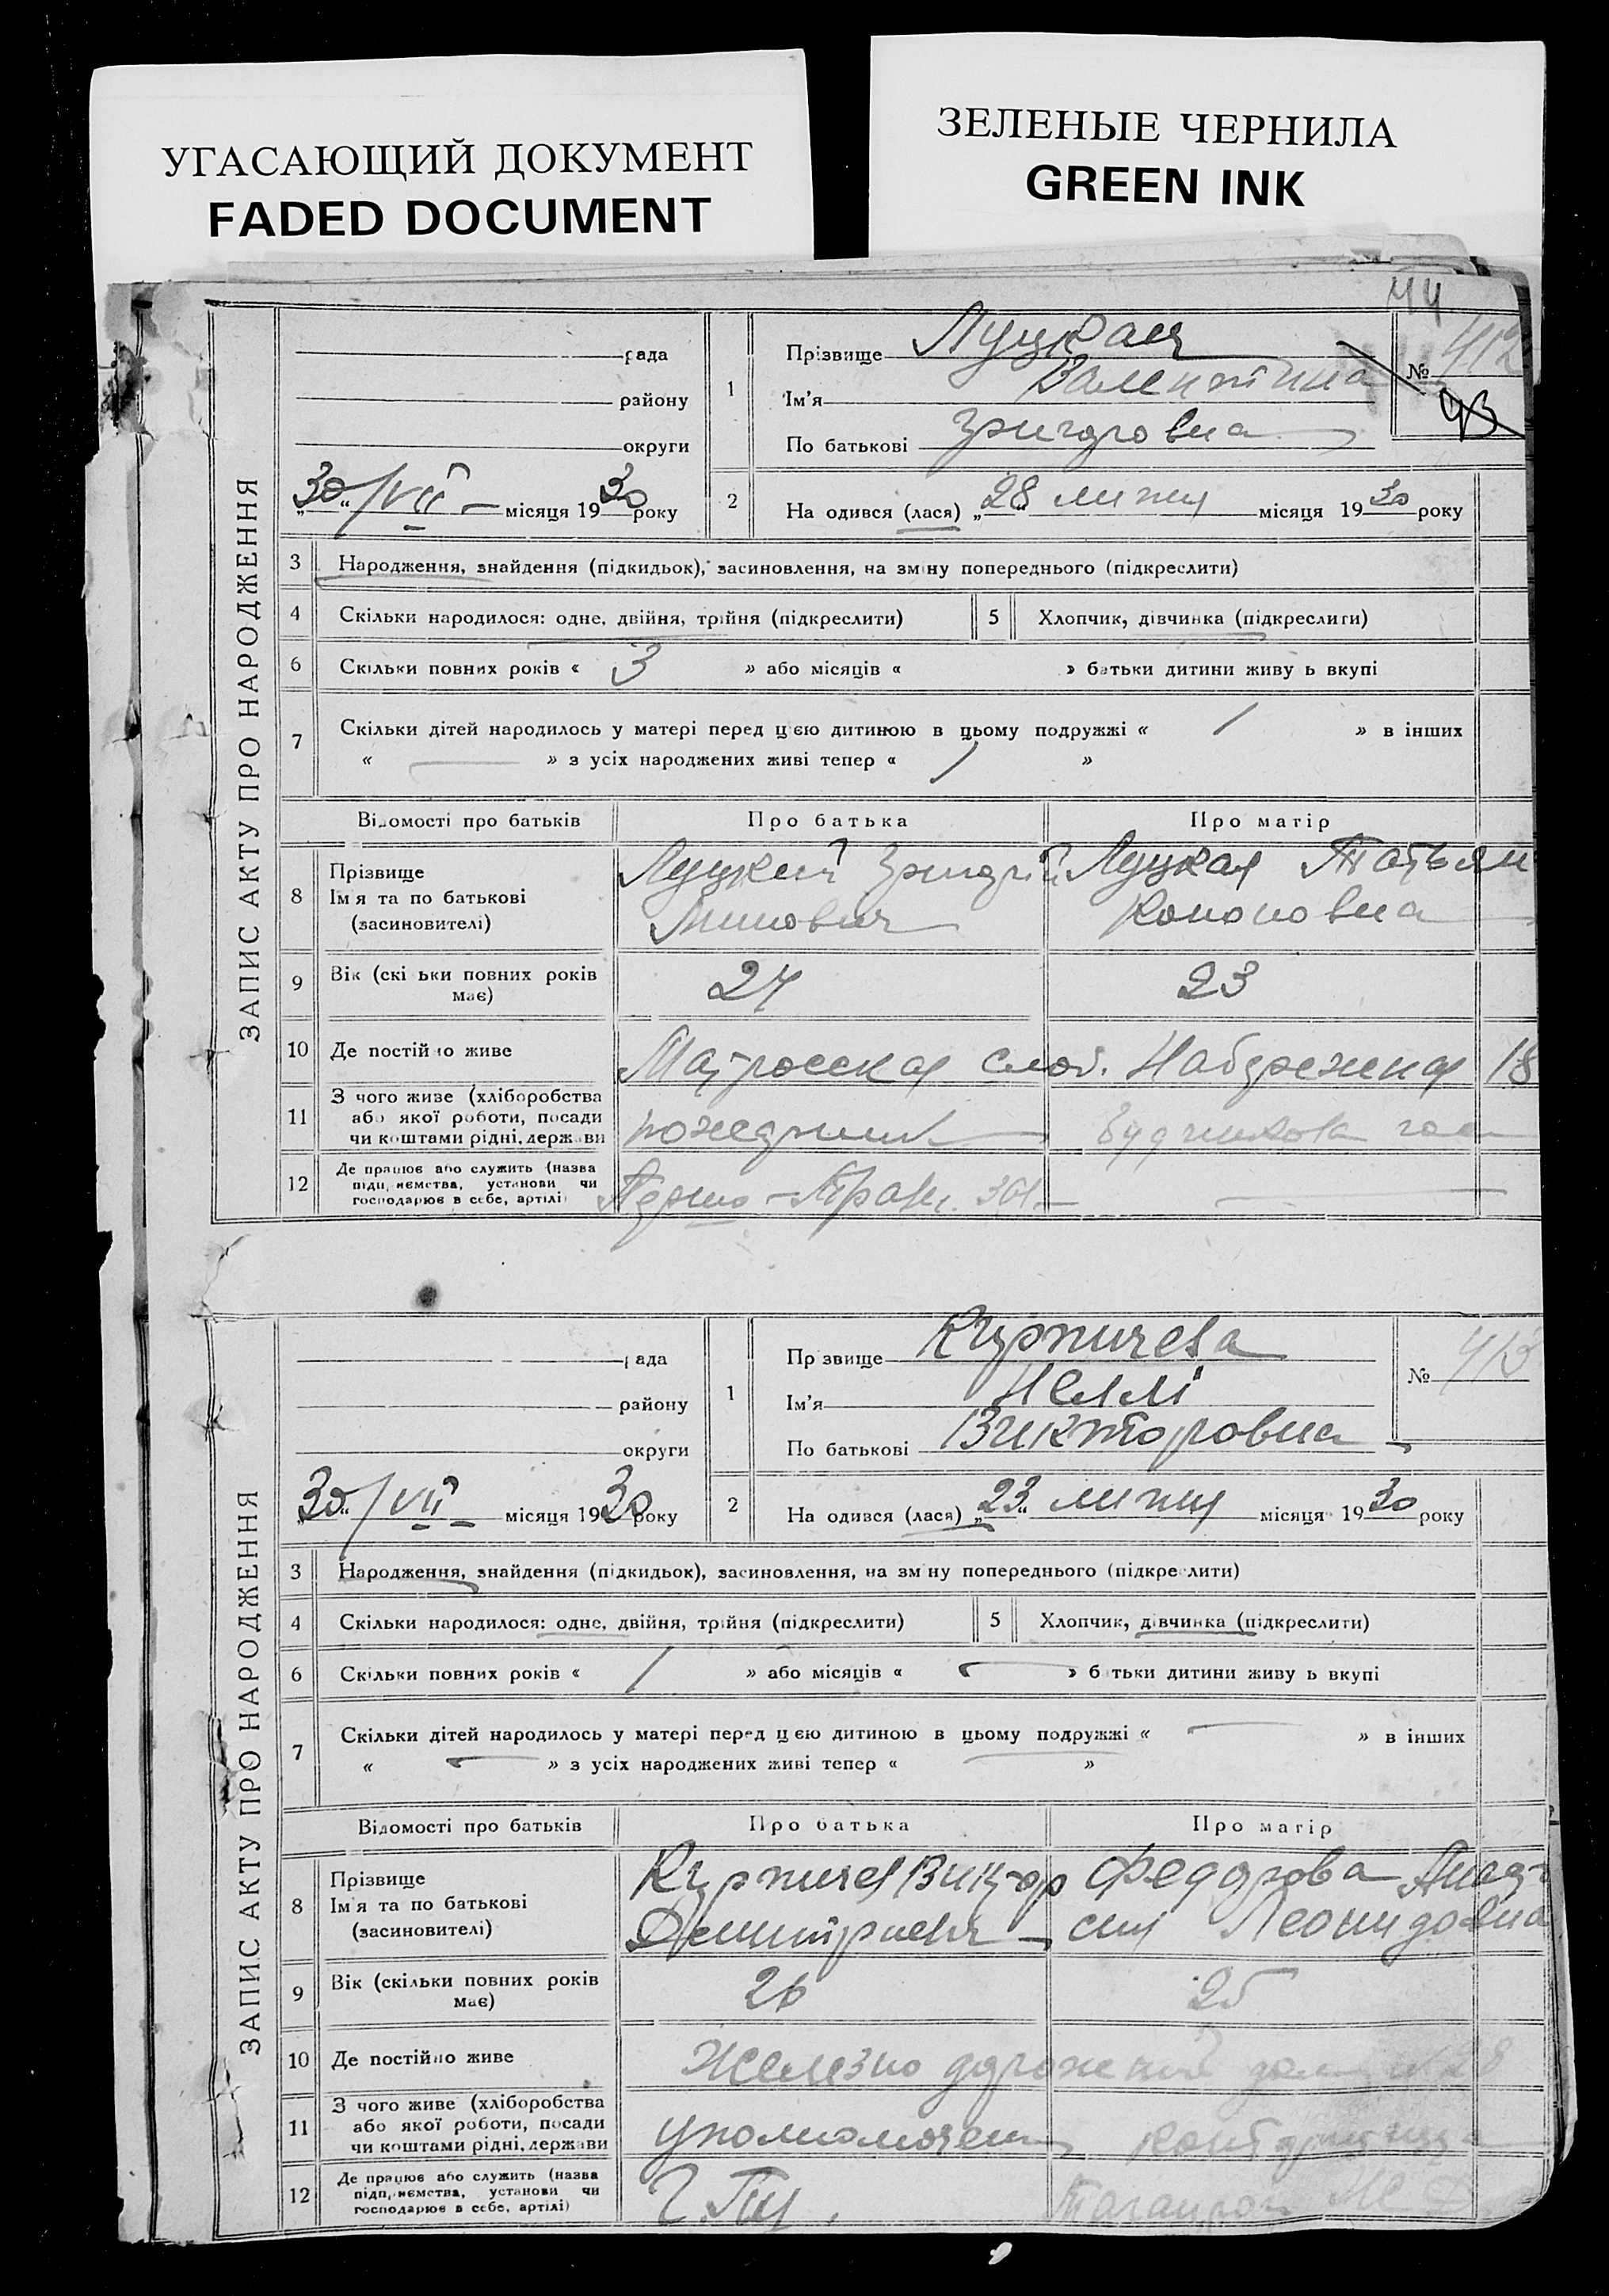 УГАСАЮЩИЙ ДОКУМЕНТ
FADED DOCUMENT
ЗЕЛЕНЫЕ ЧЕРНИЛА
GREEN INK
44
ЗАПИС АКТУ ПРО НАРОДЖЕННЯ
рада
району
округи
„30“/VII місяця 1930 року
1 Прізвище Луцкая
Ім'я Валентина
По батькові Григоровна
№ 412
43
2 На одився (лася) „28“ липня місяця 1930 року
3 Народження, знайдення (підкидьок), засиновлення, на зміну попереднього (підкреслити)
4 Скільки народилося: одне, двійня, трійня (підкреслити) 5 Хлопчик, дівчинка (підкреслити)
6 Скільки повних років « 3 » або місяців « » батьки дитини живу ь вкупі
7 Скільки дітей народилось у матері перед цією дитиною в цьому подружжі « 1 » в інших
« — » з усіх народжених живі тепер « 1 »
Відомості про батьків Про батька Про матір
8 Прізвище Луцкий Григрій Луцкая Татьян
Ім'я та по батькові Кононовна
(засиновителі)
9 Вік (скі ьки повних років 27 23
має)
10 Де постійно живе Матросская слоб. Набережная 18
11 З чого живе (хліборобства
або якої роботи, посади
чи коштами рідні, держави
12 Де працює або служить (назва
підприємства, установи чи
господарює в себе, артілі)
ЗАПИС АКТУ ПРО НАРОДЖЕННЯ
рада
району
округи
„30“/VII місяця 1930 року
1 Пр звище Кирпичева
Ім'я Неллі
По батькові Викторовна
№ 413
2 На одився (лася) „23“ липня місяця 1930 року
3 Народження, знайдення (підкидьок), засиновлення, на зміну попереднього (підкреслити)
4 Скільки народилося: одне, двійня, трійня (підкреслити) 5 Хлопчик, дівчинка (підкреслити)
6 Скільки повних років « 1 » або місяців « — » б тьки дитини живу ь вкупі
7 Скільки дітей народилось у матері перед цією дитиною в цьому подружжі « — » в інших
« — » з усіх народжених живі тепер « — »
Відомості про батьків Про батька Про матір
8 Прізвище Кирпичев Виктор Федорова Анаста
Ім'я та по батькові Дмитриевич — сия Леонидовна
(засиновителі)
9 Вік (скільки повних років 26 25
має)
10 Де постійно живе Железно дорожний
11 З чого живе (хліборобства
або якої роботи, посади уполномочен
чи коштами рідні, держави
12 Де працює або служить (назва
підприємства, установи чи
господарює в себе, артілі)